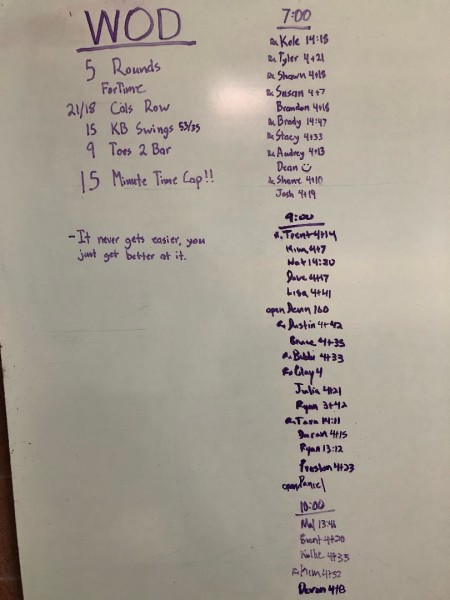 WOD
5 Rounds
For Time
21/18 Cals Row
15 KB Swings 53/35
9 Toes 2 Bar
15 Minute Time Cap!!
- It never gets easier, you
just get better at it.
7:00
Rx Kole 14:18
Rx Tyler 4+21
Rx Shawn 4+18
Rx Susan 4+7
Brandon 4+18
Rx Brody 14:47
Rx Stacy 4+33
Rx Audrey 4+13
Dean
Rx Shane 4+10
Josh 4+19
9:00
Rx Trent 4+14
Kim 4+7
Nat 14:20
Dave 4+17
Lisa 4+41
open Devin 160
Rx Dustin 4+42
Bruce 4+35
Rx Bobbi 4+33
Rx Clay 4
Julia 4+21
Ryan 3+42
Rx Tara 14:11
Daran 4+15
Ryan 13:12
Preston 4+23
open Daniel
10:00
Mal
Brent 4+20
4+33
4+52
Devan 4+8